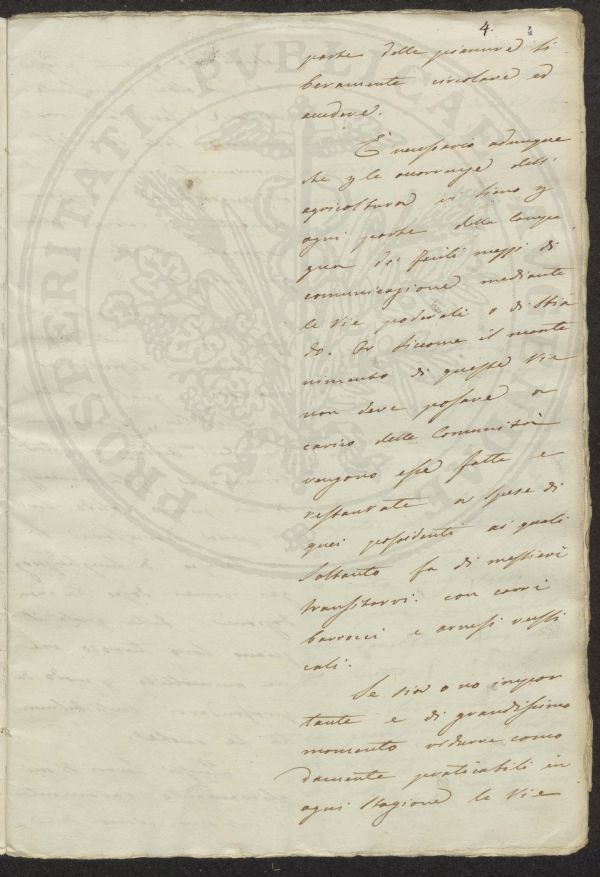 4.
parte delle pianure li
beramente circolare ed
accedere.
È necessario adunque
che p le occorrenze dell'
agricoltura vi siano p
ogni parte della campa
gna dei facili mezzi di
comunicazione mediante
le Vie poderali o di Stra
do. Or siccome il mante
nimento di queste Vie
non deve posare a
carico delle Comunità
vengono esse fatte e
restaurate a spese di
quei possidenti ai quali
Soltanto fa di mestieri
transitarvi con carri
barrocci e arnesi rusti
cali.
Se sia o no impor
tante e di grandissimo
momento ridurre como
damente praticabili in
ogni Stagione le Vie
PROSPERITATI PVBLICAE AVGENDAE